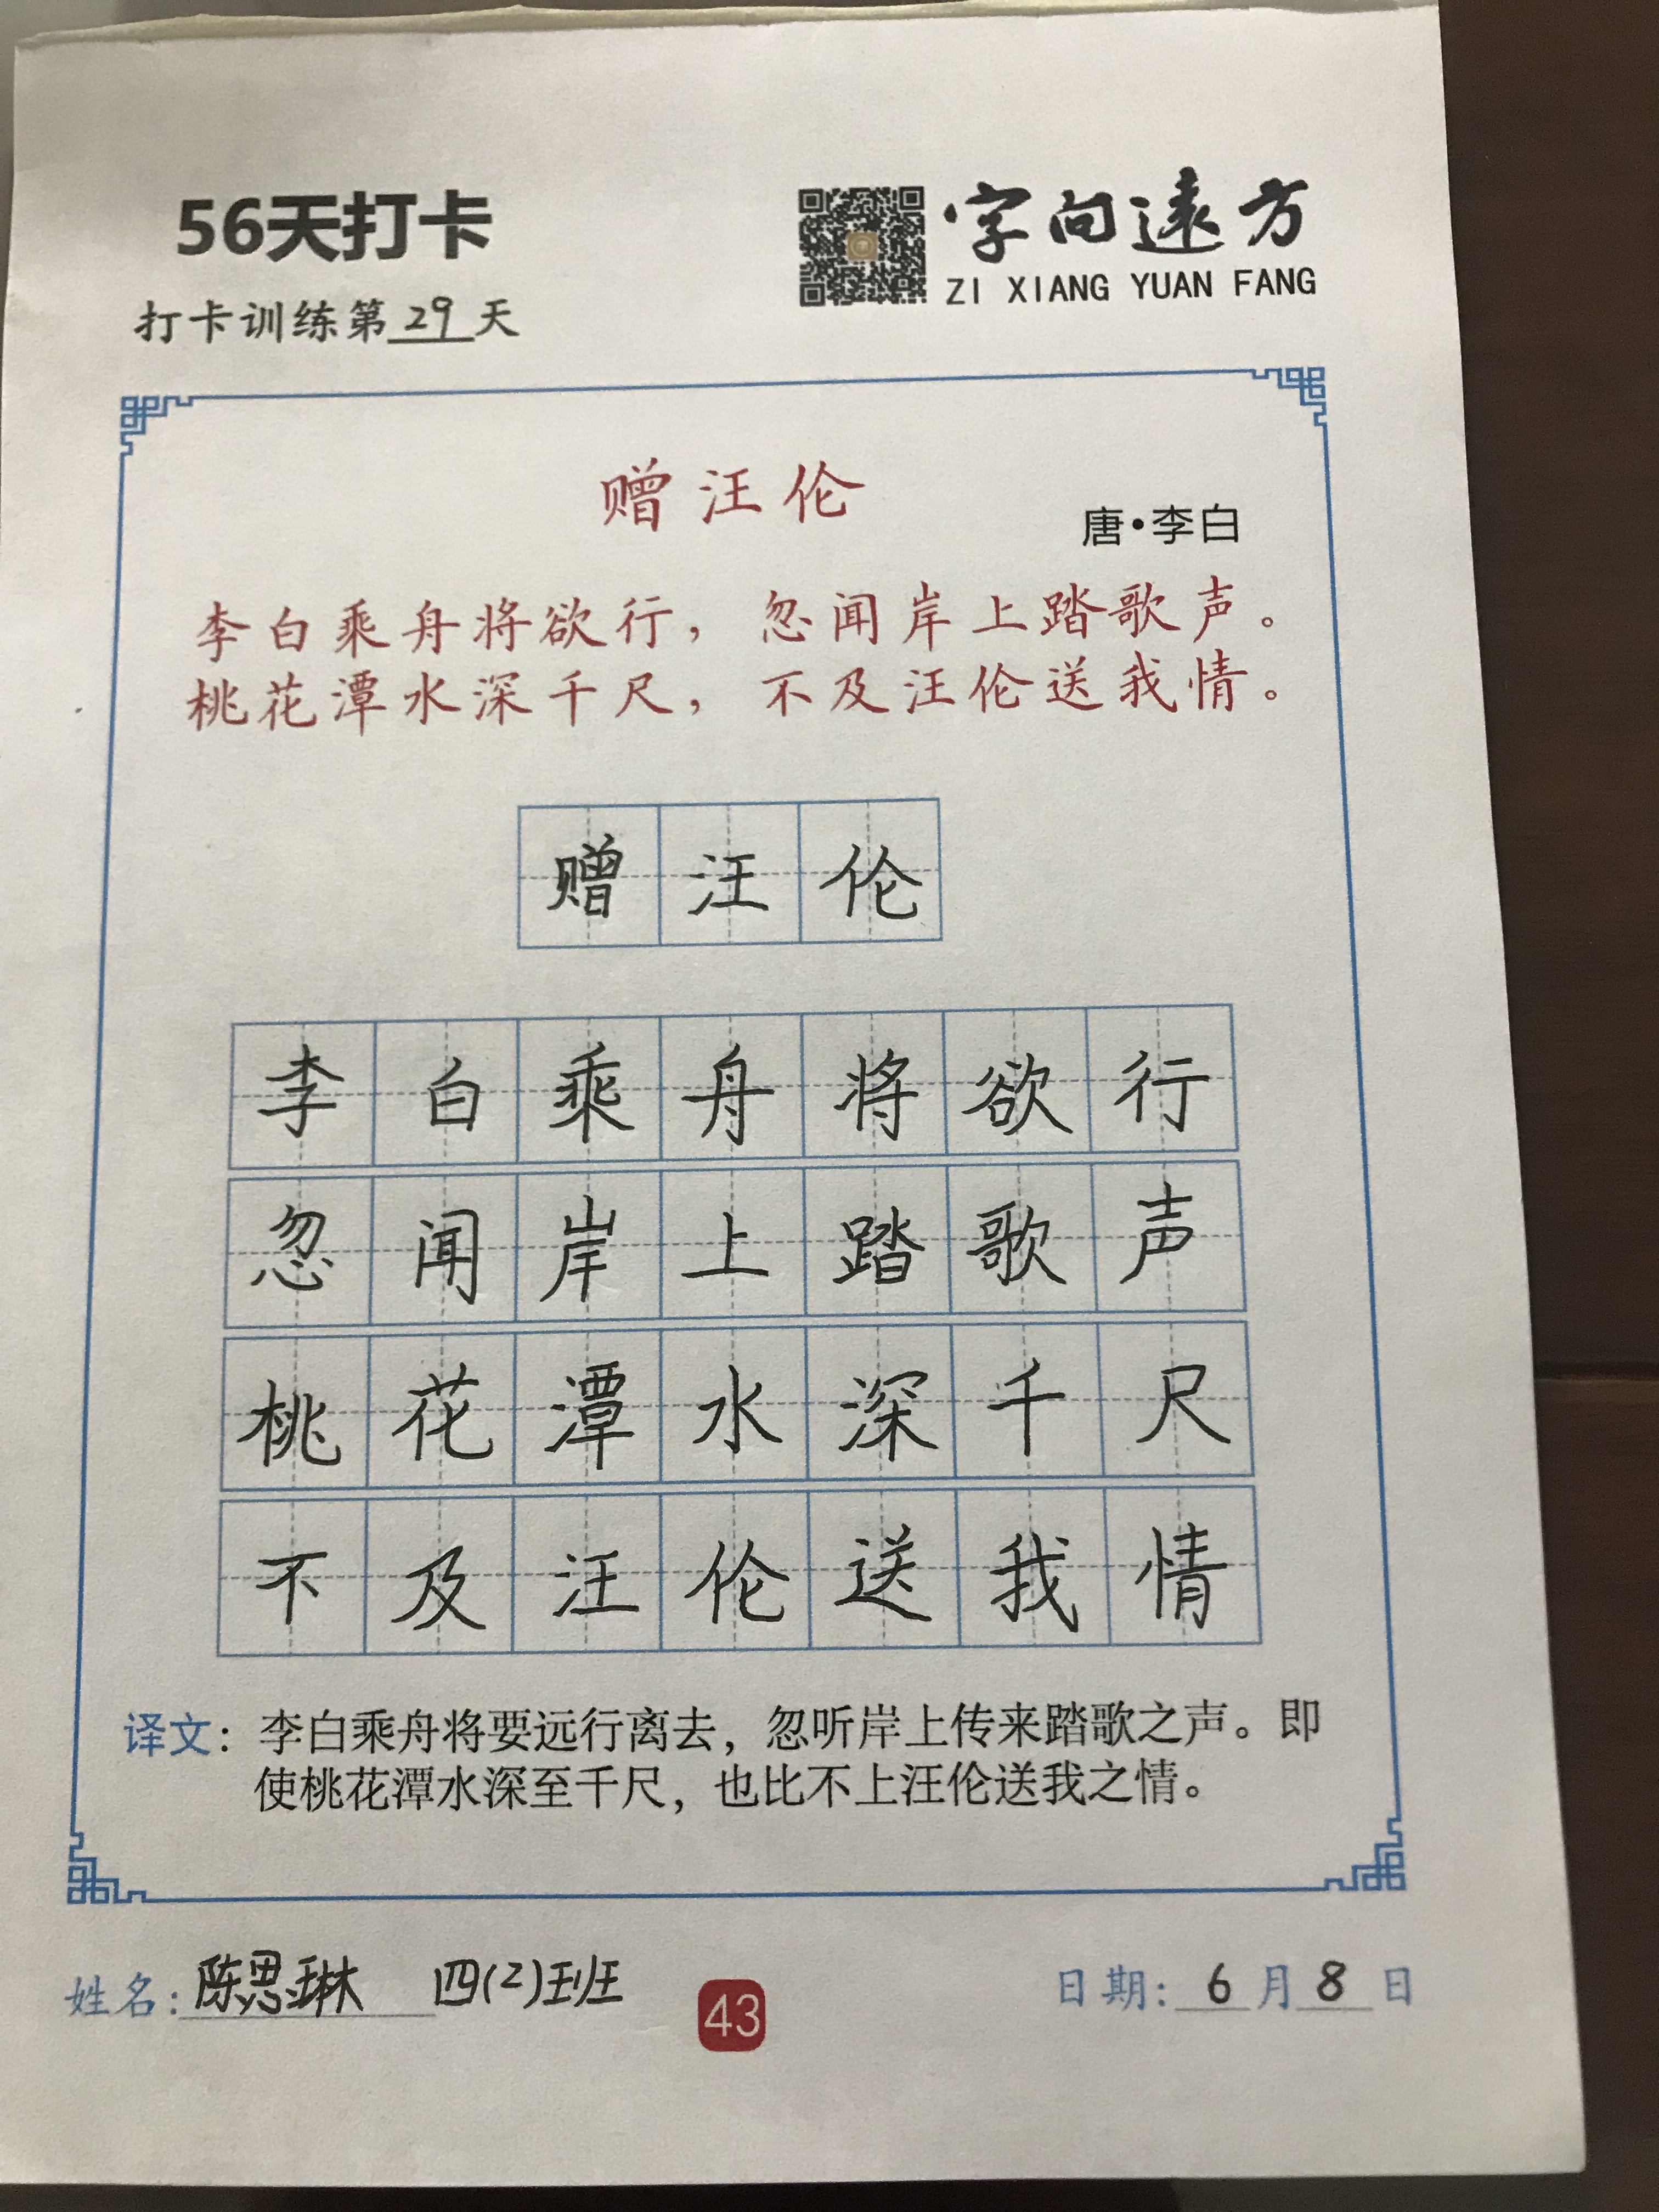 56天打卡
字向遠方
ZI XIANG YUAN FANG
打卡训练第29天
赠汪伦
唐•李白
李白乘舟将欲行，忽闻岸上踏歌声。
桃花潭水深千尺，不及汪伦送我情。
赠汪伦
李白乘舟将欲行
忽闻岸上踏歌声
桃花潭水深千尺
不及汪伦送我情
译文：李白乘舟将要远行离去，忽听岸上传来踏歌之声。即
使桃花潭水深至千尺，也比不上汪伦送我之情。
姓名：陈思琳 四(2)班
43
日期：6月8日